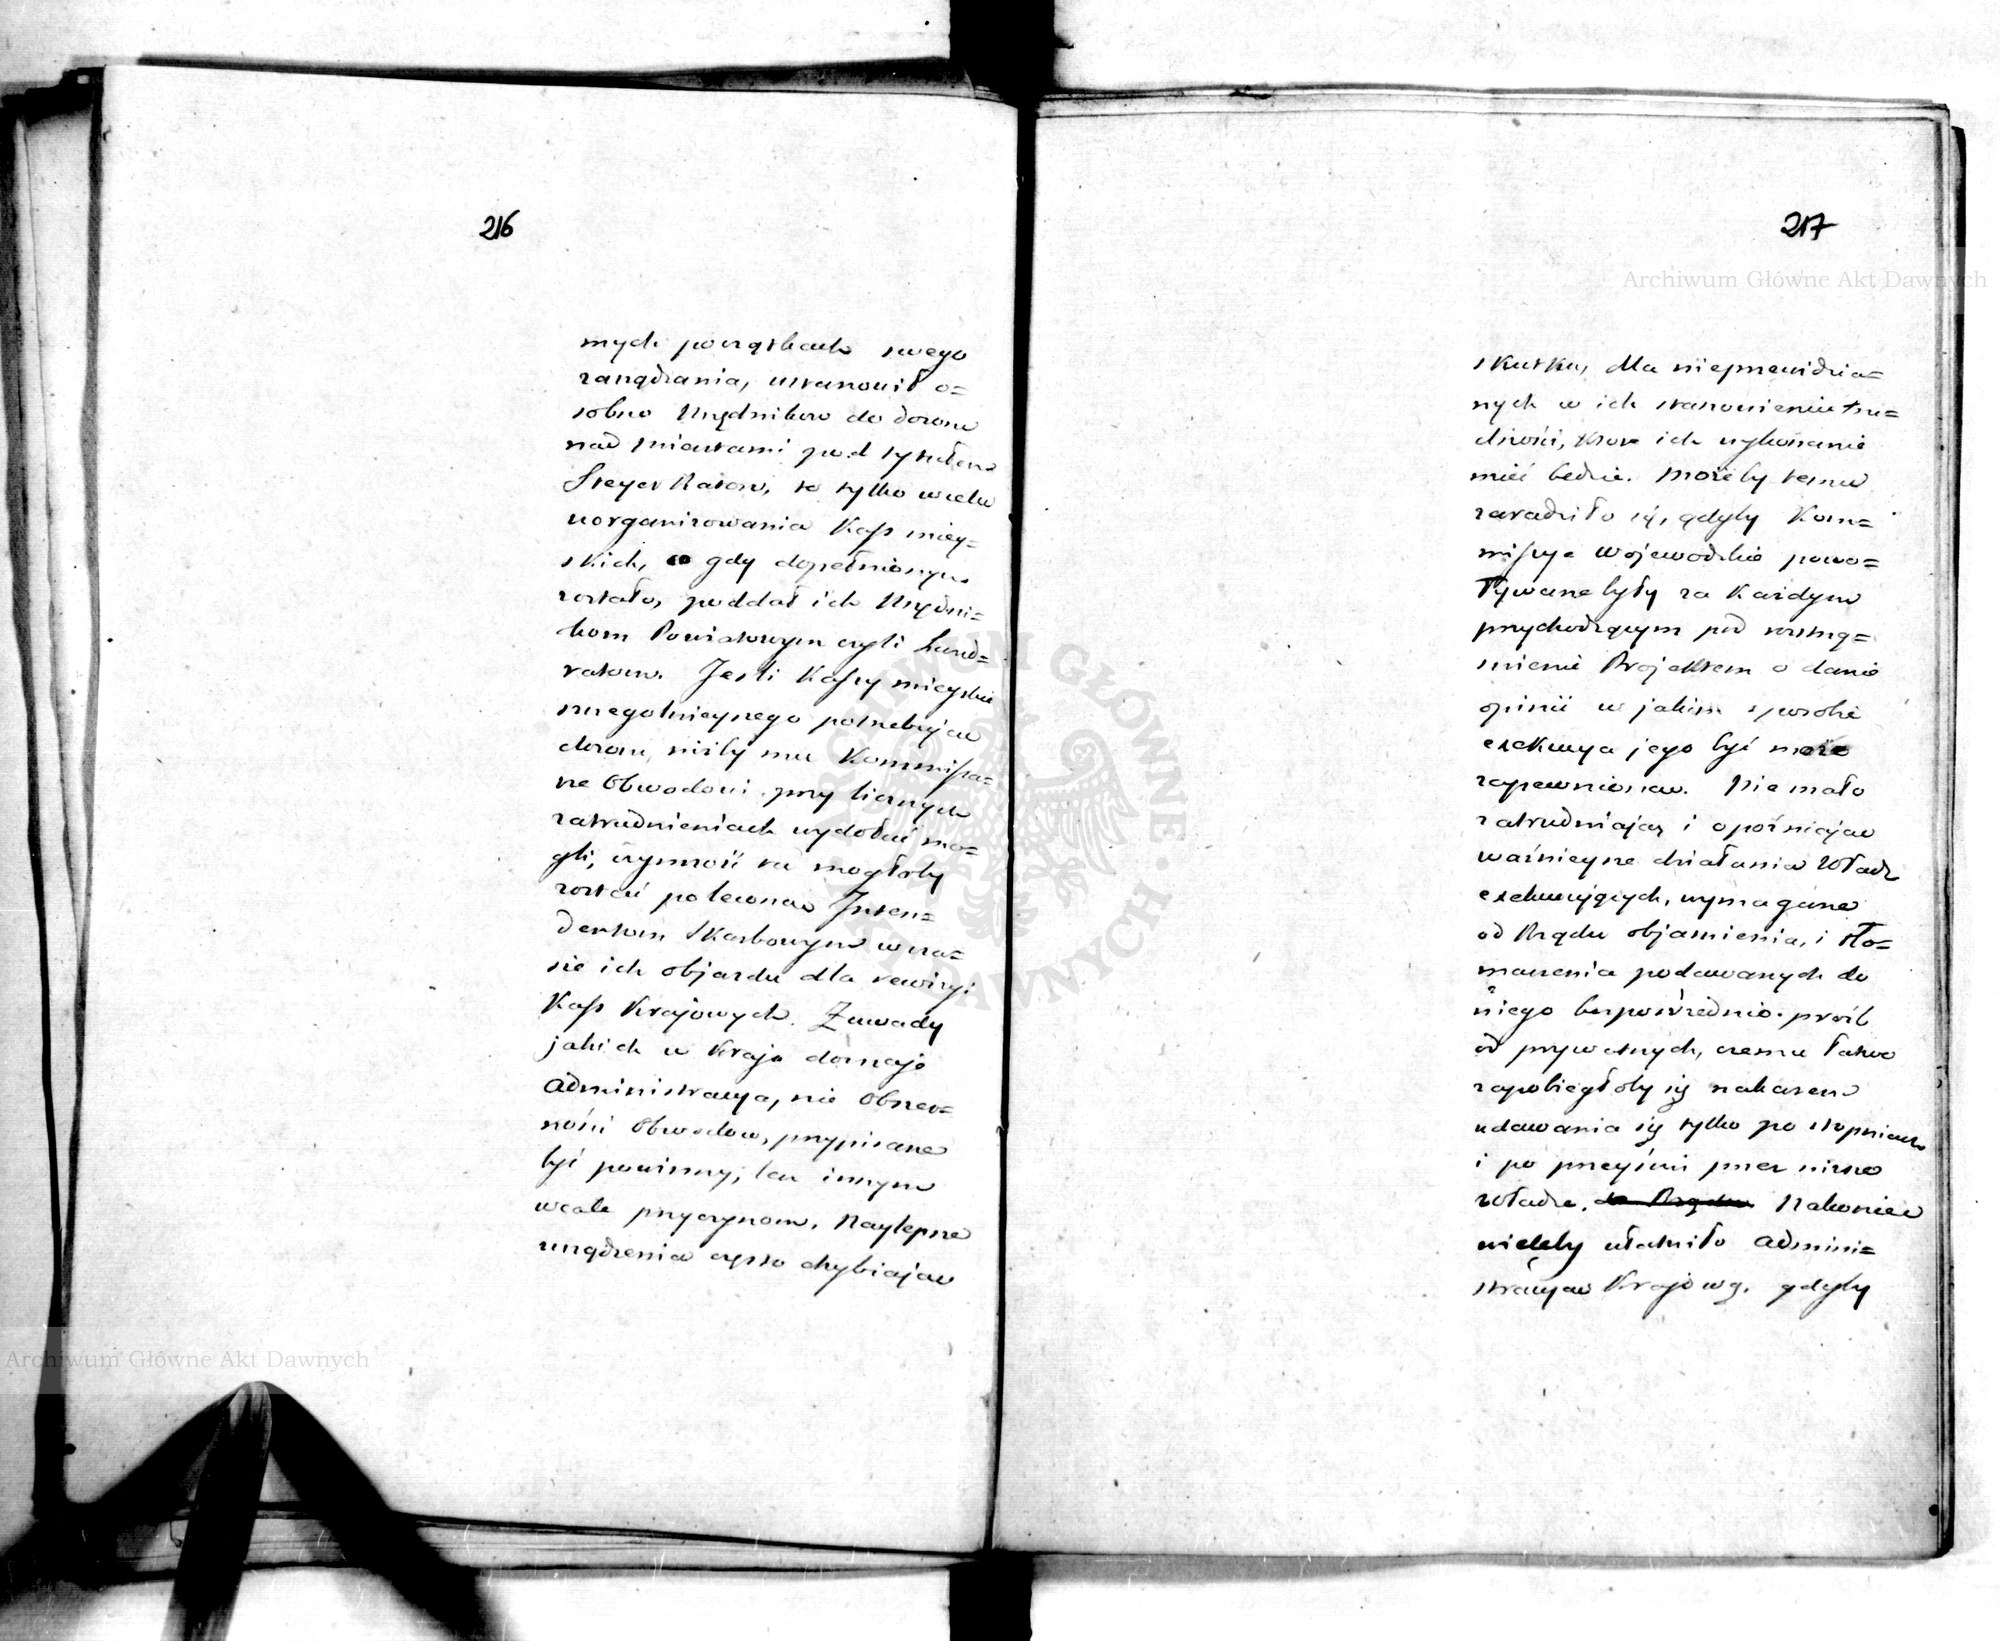 216
mych początkach swego
zarządzania, ustanowił o=
sobno Urzędników do dozoru
nad miastami pod tytułem
SteyerRatow, to tylko w celu
uorganizowania Kass miey=
skich, co gdy dopełnionym
zostało, poddał ich Urzędni=
kom Powiatowym czyli Land=
ratom. Jesli Kassy mieyskie
szczegolnieyszego potrzebuią
dozoru, niżby mu Kommissa=
rze Obwodowi przy licznych
zatrudnieniach wydołać mo=
gli, czynność ta mogłaby
zostać poleconą Inten=
dentom Skarbowym w cza=
sie ich objazdu dla rewizyi
Kass Krajowych. Zawady
jakich w Kraju doznaje
Administracya, nie Obszer=
ności Obwodow, przypisane
być powinny, lecz innym
wcale przyczynom. Naylepsze
urządzenia często chybiają
217
skutku, dla nieprzewidzia=
nych w ich stanowieniu tru=
dności, które ich wykonanie
mieć będzie. Możeby temu
zaradziło się, gdyby Kom=
missye Wojewodzkie powo=
ływane były za Każdym
przychodzącym pod roztrzą=
śnienie Projektem o danie
opinii w jakim sposobie
exekucya jego być może
zapewnioną. Nie mało
zatrudniają i opoźniają
ważnieysze działania Władz
exekucyjnych, wymagane
od Rządu objaśnienia, i tło=
maczenia podawanych do
niego bezpośrednio prośb
od prywatnych, czemu łatwo
zapobiegłoby się nakazem
udawania się tylko po stopniach
i po przejściu przez niższe
władze, do Rządu Nakoniec
wieleby ułatwiło Admini=
stracyą Krajową, gdyby
Archiwum Główne Akt Dawnych
Archiwum Główne Akt Dawnych
ARCHIWUM GŁÓWNE AKT DAWNYCH